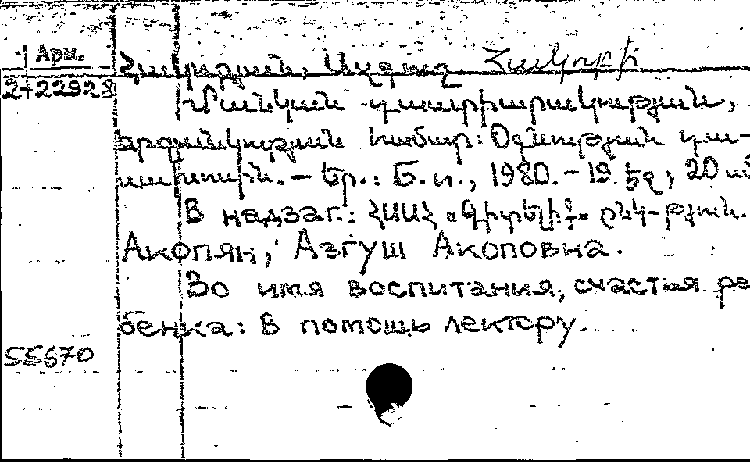 Арм.
2-22928
Հակոբյան, Ազգուշ Հակոբի
Մանկան դաստիարակության,
երջանկության համար: Օգնության դա-
սախոսին. - Եր.: Б. и., 1980. - 19 էջ, 20 սմ
В надзаг.: ՀՍՍՀ «Գիտելիք» ընկ-թյան.
Акопян, Азгуш Акоповна.
Во имя воспитания, счастья ре
бенка: В помощь лектору.
55670